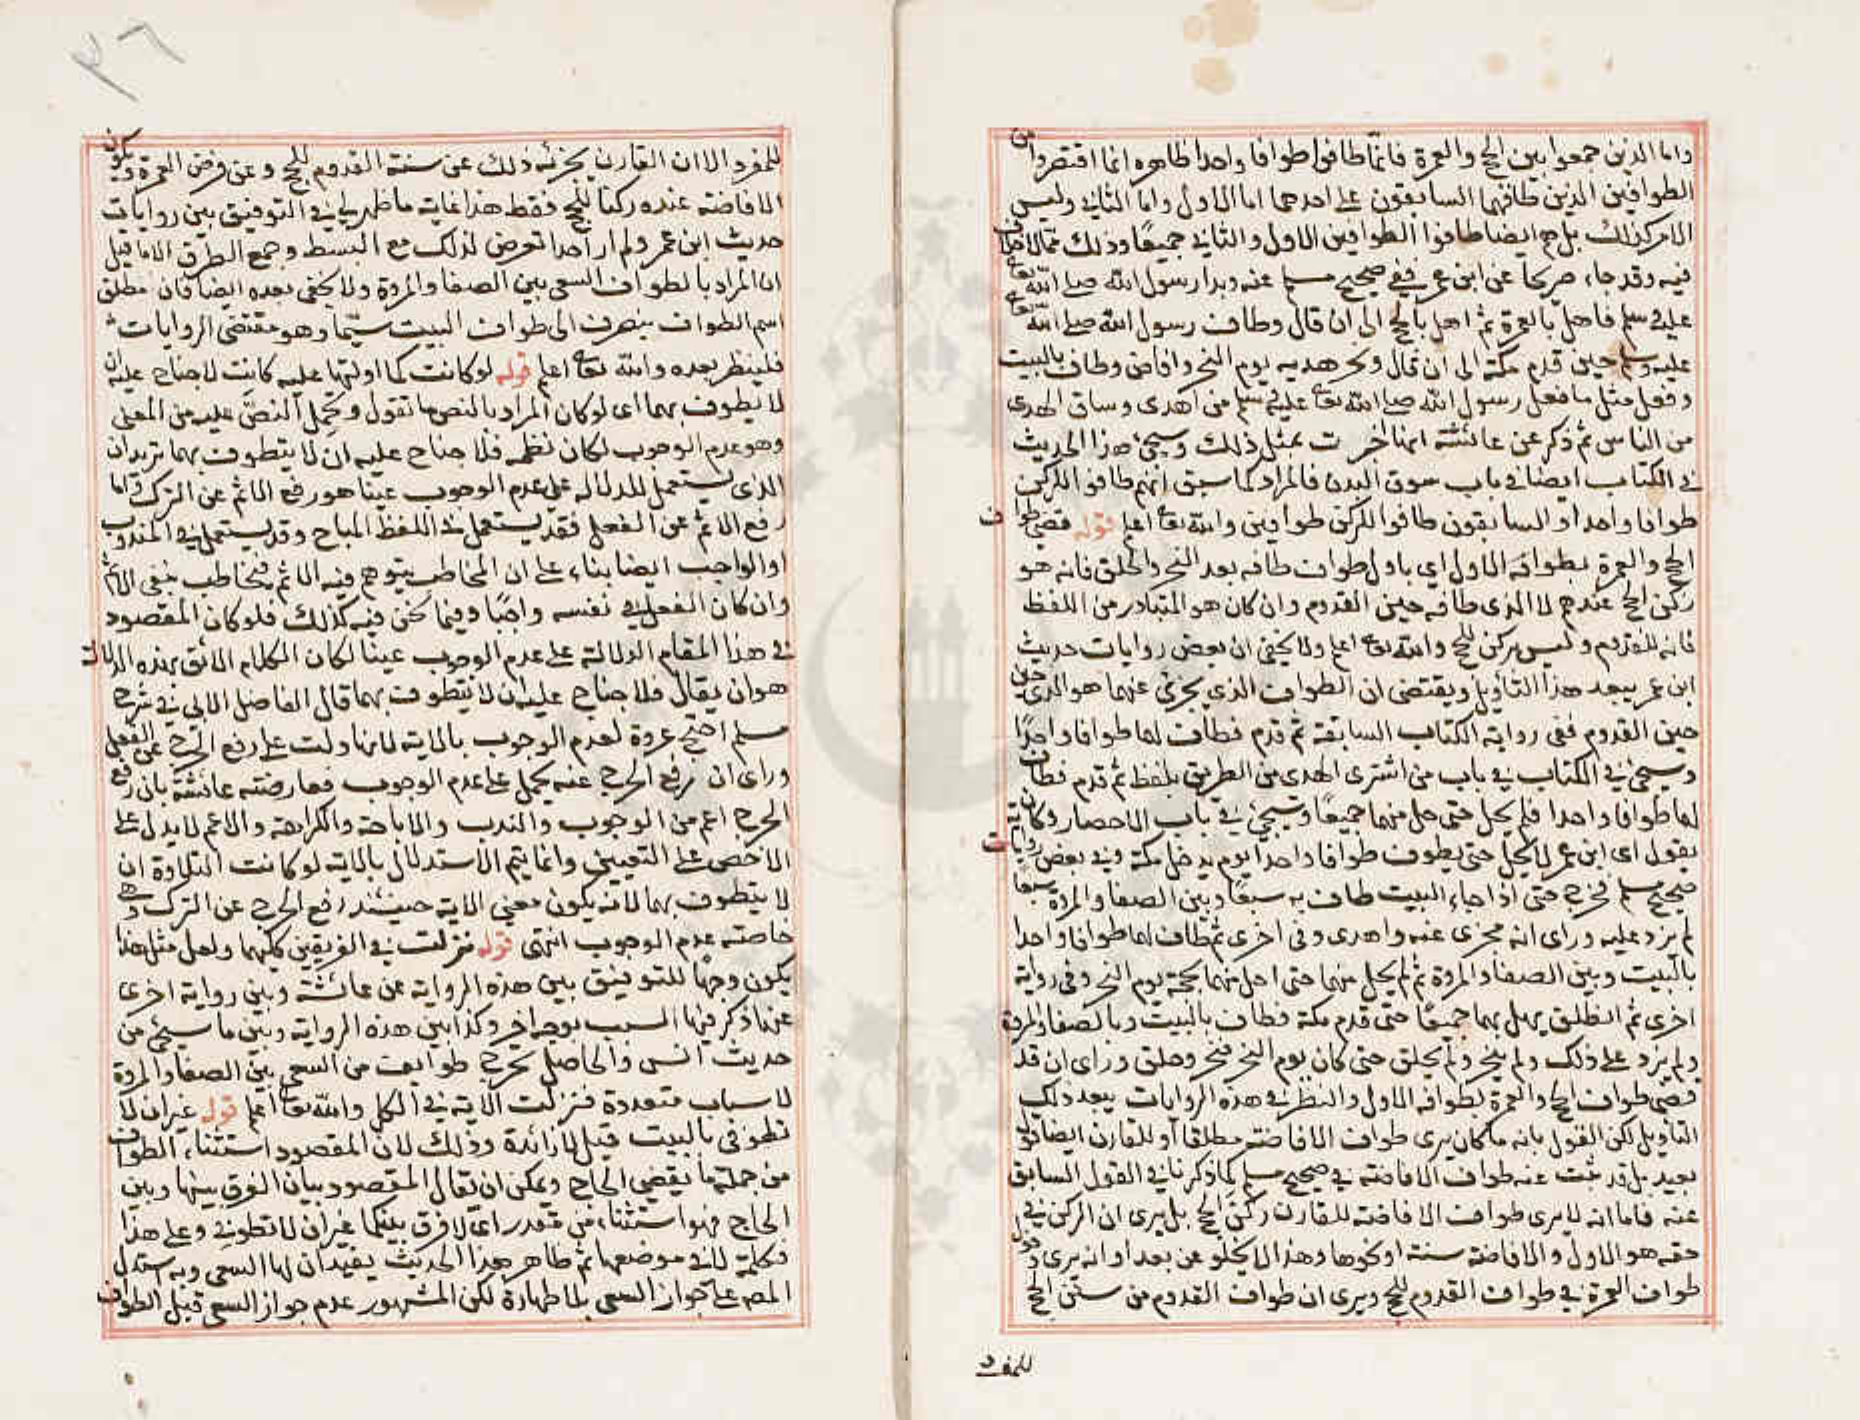 واما الذين جمعوا بين الحج والعمرة فانما طافوا طوافا واحدا ظاهره انما اقتصروا من
الطوافين الذين طافهما السابقون على احدهما اما الاول واما الثاني وليس
الامر كذلك بل هم ايضا طافوا الطوافين الاول والثاني جميعا وذلك مما لا خلاف
فيه وقد جاء صريحا عن ابن عمر ففي صحيح مسلم عنه وبدا رسول الله صلى الله تعالى
عليه وسلم فاهل بالعمرة ثم اهل بالحج الى ان قال وطاف رسول الله صلى الله تعالى
عليه وسلم حين قدم مكة الى ان قال ونحر هديه يوم النحر وافاض وطاف بالبيت
وفعل مثل ما فعل رسول الله صلى الله تعالى عليه وسلم من اهدى وساق الهدى
من الناس ثم ذكر عن عائشة انها اخبرت بمثل ذلك وسيجئ هذا الحديث
في الكتاب ايضا في باب سوق البدن فالمراد كما سبق انهم طافوا للركن
طوافا واحدا والسابقون طافوا للركن طوافين والله تعالى اعلم قوله قضى طواف
الحج والعمرة بطوافه الاول اي باول طواف طافه بعد النحر والحلق فانه هو
ركن الحج عندهم لا الذي طافه حين القدوم وان كان هو المتبادر من اللفظ
فانه للقدوم وليس بركن للحج والله تعالى اعلم ولا يخفى ان بعض روايات حديث
ابن عمر يبعد هذا التأويل ويقتضى ان الطواف الذي يجزئ عنهما هو الذي
حين القدوم ففي رواية الكتاب السابقة ثم قدم فطاف لهما طوافا واحدا
وسيجئ في الكتاب في باب من اشترى الهدى من الطريق بلفظ ثم قدم فطاف
لهما طوافا واحدا فلم يحل حتى حل منهما جميعا وسيجئ في باب الاحصار وكان
يقول اي ابن عمر لا يحل حتى يطوف طوافا واحدا يوم يدخل مكة وفي بعض روايات
صحيح مسلم فخرج حتى اذا جاء البيت طاف به سبعا وبين الصفا والمروة سبعا
لم يزد عليه وراى انه مجزى عنه واهدى وفي اخرى ثم طاف لهما طوافا واحدا
بالبيت وبين الصفا والمروة ثم لم يحل منهما حتى احل منهما بحجة يوم النحر وفي رواية
اخرى ثم انطلق يهل بهما جميعا حتى قدم مكة فطاف بالبيت وبالصفا والمروة
ولم يزد على ذلك ولم ينحر ولم يحلق حتى كان يوم النحر فنحر وحلق وراى ان قد
قضى طواف الحج والعمرة بطوافه الاول والنظر في هذه الروايات يبعد ذلك
التأويل لكن القول بانه ما كان يرى طواف الافاضة مطلقا او للقارن ايضا قول
بعيد بل قد ثبت عنه طواف الافاضة في صحيح مسلم كما ذكرنا في القول السابق
عنه فاما انه لا يرى طواف الافاضة للقارن ركن الحج بل يرى ان الركن في
حقه هو الاول والافاضة سنة او نحوها وهذا لا يخلو عن بعد او انه يرى دخول
طواف العمرة في طواف القدوم للحج ويرى ان طواف القدوم من سنن الحج
للمفرد
٣٦
للمفرد الا ان القارن يجزئه ذلك عن سنة القدوم للحج وعن فرض العمرة ويكون
الافاضة عنده ركنا للحج فقط هذا غاية ما ظهر لي في التوفيق بين روايات
حديث ابن عمر ولم ار احدا تعرض لذلك مع البسط وجمع الطرق الا ما قيل
ان المراد بالطواف السعي بين الصفا والمروة ولا يخفى بعده ايضا فان مطلق
اسم الطواف ينصرف الى طواف البيت سيما وهو مقتضى الروايات
فلينظر بعده والله تعالى اعلم قوله لو كانت كما اولتها عليه كانت لا جناح عليه ان
لا يطوف بهما اي لو كان المراد بالنص ما تقول وتحمل النص عليه من المعنى
وهو عدم الوجوب لكان نظمه فلا جناح عليه ان لا يتطوف بهما تريد ان
الذي يستعمل للدلالة على عدم الوجوب عينا هو رفع الاثم عن الترك واما
رفع الاثم عن الفعل فقد يستعمل في اللفظ المباح وقد يستعمل في المندوب
او الواجب ايضا بناء على ان المخاطب يتوهم فيه الاثم فيخاطب بنفي الاثم
وان كان الفعل في نفسه واجبا وفيما نحن فيه كذلك فلو كان المقصود
في هذا المقام الدلالة على عدم الوجوب عينا لكان الكلام اللائق بهذه الدلالة
هو ان يقال فلا جناح عليه ان لا يتطوف بهما قال الفاضل الابي في شرح
مسلم احتج عروة لعدم الوجوب بالاية لانها دلت على رفع الحرج عن الفعل
وراى ان رفع الحرج عنه يحمل على عدم الوجوب فعارضته عائشة بان رفع
الحرج اعم من الوجوب والندب والاباحة والكراهة والاعم لا يدل على
الاخص على التعيين وانما يتم الاستدلال بالاية لو كانت التلاوة ان
لا يتطوف بهما لانه يكون معنى الاية حينئذ رفع الحرج عن الترك وهي
خاصة عدم الوجوب انتهى قوله فنزلت في الفريقين كليهما ولعل مثل هذا
يكون وجها للتوفيق بين هذه الرواية عن عائشة وبين رواية اخرى
عنها ذكر فيها السبب بوجه اخر وكذا بين هذه الرواية وبين ما سيجئ من
حديث انس والحاصل تحرج طوايف من السعي بين الصفا والمروة
لاسباب متعددة فنزلت الاية في الكل والله تعالى اعلم قوله غير ان لا
تطوفي بالبيت قيل لا زائدة وذلك لان المقصود استثناء الطواف
من جملة ما يقضي الحاج ويمكن ان يقال المقصود بيان الفرق بينها وبين
الحاج فهو استثناء من مقدر اي لا فرق بينكما غير ان لا تطوفي وعلى هذا
فكلمة لا في موضعها ثم ظاهر هذا الحديث يفيد ان لها السعي وبه استدل
المصـ على جواز السعي بلا طهارة لكن المشهور عدم جواز السعي قبل الطواف